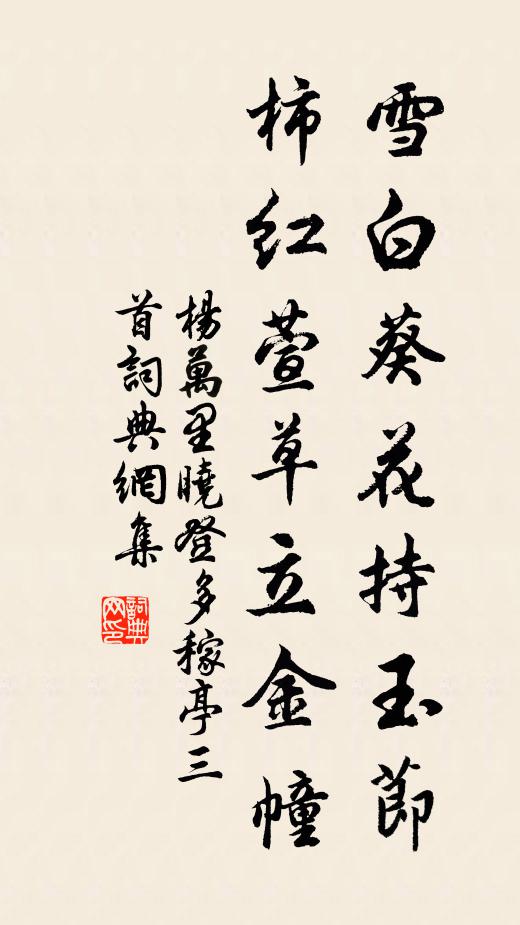 雪白葵花持玉節
柿紅萱草立金幢
楊萬里曉登多稼亭三
首詞典網集
詞典
网印